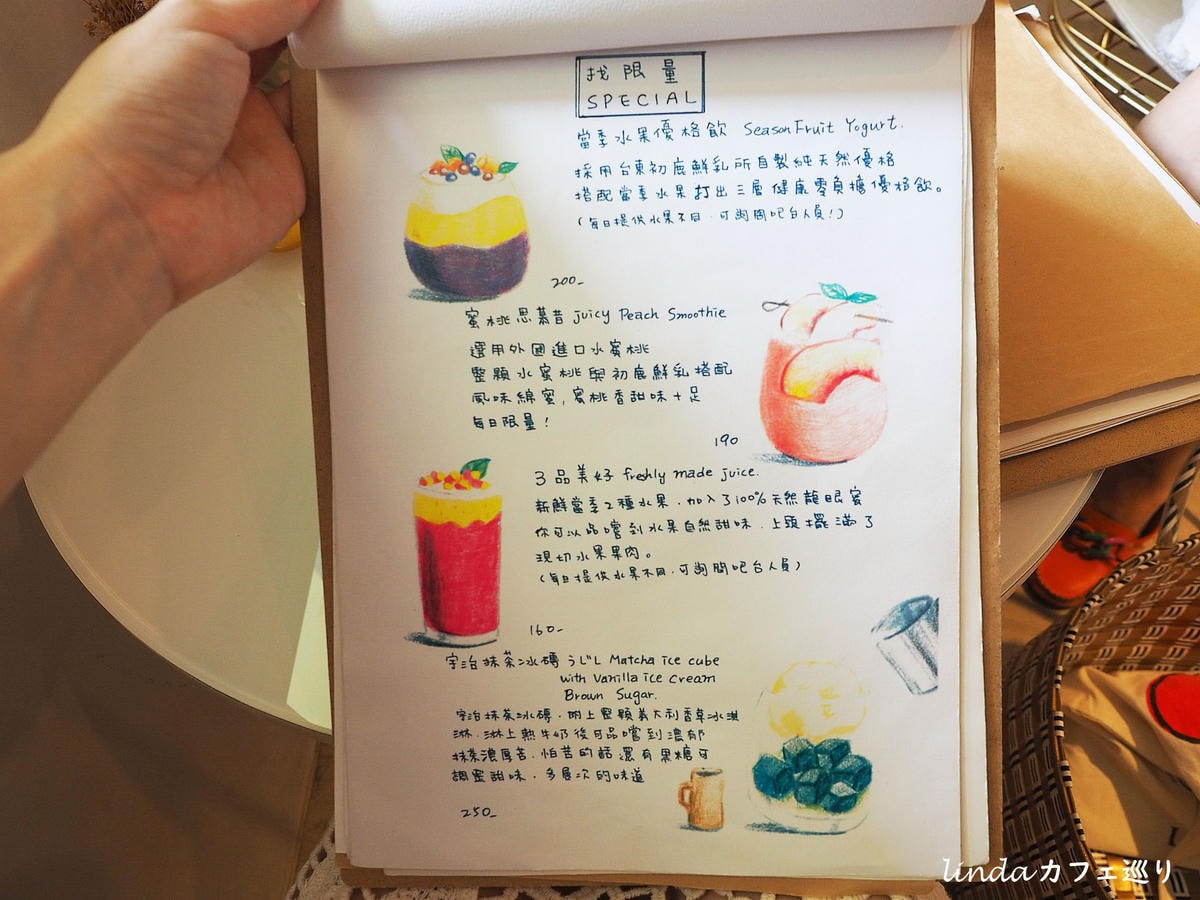 找限量
SPECIAL
當季水果優格飲 Season Fruit Yogurt.
採用台東初鹿鮮乳所自製純天然優格
搭配當季水果打出三層健康零負擔優格飲。
(每日提供水果不同.可詢問吧台人員!)
200-
蜜桃思慕昔 juicy Peach Smoothie
選用外國進口水蜜桃
整顆水蜜桃與初鹿鮮乳搭配
風味綿蜜,蜜桃香甜味十足
每日限量!
190
3品美好 freshly made juice.
新鮮當季2種水果.加入了100%天然龍眼蜜
你可以品嚐到水果自然甜味.上頭擺滿了
現切水果果肉。
(每日提供水果不同.可詢問吧台人員)
160-
宇治抹茶冰磚 うじし Matcha ice cube
with Vanilla ice cream
Brown Sugar.
宇治抹茶冰磚.附上整顆義大利香草冰淇
淋.淋上熱牛奶後可品嚐到濃郁
抹茶濃厚苦.怕苦的話還有黑糖可
調蜜甜味.多層次的味道
250-
lindaカフェ巡り